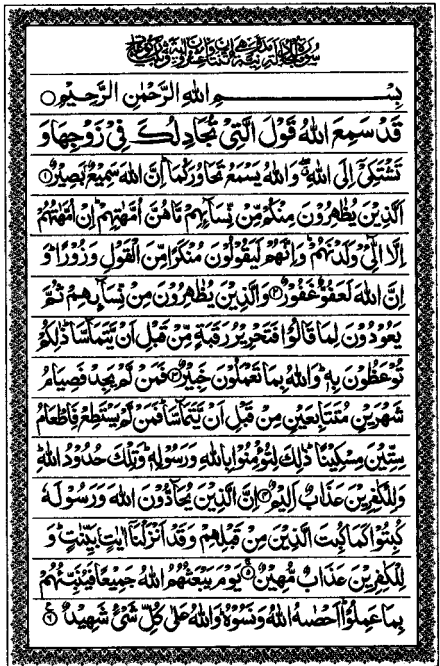 سُوْرَةُ الْمُجَادَلَةِ مَدَنِيَّةٌ
بِسْمِ اللهِ الرَّحْمٰنِ الرَّحِيْمِ ○
قَدْ سَمِعَ اللهُ قَوْلَ الَّتِيْ تُجَادِلُكَ فِيْ زَوْجِهَا وَ
تَشْتَكِيْٓ اِلَى اللهِ ۖ وَاللهُ يَسْمَعُ تَحَاوُرَكُمَا ؕ اِنَّ اللهَ سَمِيْعٌۢ بَصِيْرٌ ①
اَلَّذِيْنَ يُظٰهِرُوْنَ مِنْكُمْ مِّنْ نِّسَآئِهِمْ مَّا هُنَّ اُمَّهٰتِهِمْ ؕ اِنْ اُمَّهٰتُهُمْ
اِلَّا الّٰٓـِٔيْ وَلَدْنَهُمْ ؕ وَاِنَّهُمْ لَيَقُوْلُوْنَ مُنْكَرًا مِّنَ الْقَوْلِ وَزُوْرًا ؕ وَ
اِنَّ اللهَ لَعَفُوٌّ غَفُوْرٌ ② وَالَّذِيْنَ يُظٰهِرُوْنَ مِنْ نِّسَآئِهِمْ ثُمَّ
يَعُوْدُوْنَ لِمَا قَالُوْا فَتَحْرِيْرُ رَقَبَةٍ مِّنْ قَبْلِ اَنْ يَّتَمَآسَّا ؕ ذٰلِكُمْ
تُوْعَظُوْنَ بِهٖ ؕ وَاللهُ بِمَا تَعْمَلُوْنَ خَبِيْرٌ ③ فَمَنْ لَّمْ يَجِدْ فَصِيَامُ
شَهْرَيْنِ مُتَتَابِعَيْنِ مِنْ قَبْلِ اَنْ يَّتَمَآسَّا ۚ فَمَنْ لَّمْ يَسْتَطِعْ فَاِطْعَامُ
سِتِّيْنَ مِسْكِيْنًا ؕ ذٰلِكَ لِتُؤْمِنُوْا بِاللهِ وَرَسُوْلِهٖ ؕ وَتِلْكَ حُدُوْدُ اللهِ ؕ
وَلِلْكٰفِرِيْنَ عَذَابٌ اَلِيْمٌ ④ اِنَّ الَّذِيْنَ يُحَآدُّوْنَ اللهَ وَرَسُوْلَهٗ
كُبِتُوْا كَمَا كُبِتَ الَّذِيْنَ مِنْ قَبْلِهِمْ وَقَدْ اَنْزَلْنَآ اٰيٰتٍۢ بَيِّنٰتٍ ؕ وَ
لِلْكٰفِرِيْنَ عَذَابٌ مُّهِيْنٌ ⑤ يَوْمَ يَبْعَثُهُمُ اللهُ جَمِيْعًا فَيُنَبِّئُهُمْ
بِمَا عَمِلُوْا ؕ اَحْصٰىهُ اللهُ وَنَسُوْهُ ؕ وَاللهُ عَلٰى كُلِّ شَيْءٍ شَهِيْدٌ ⑥